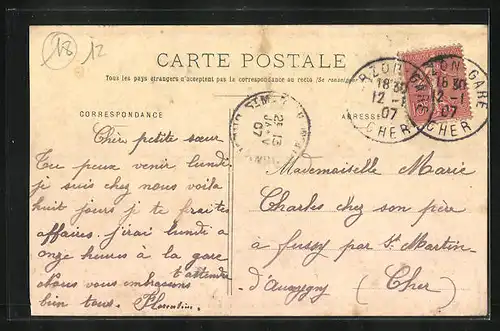 18 12
CARTE POSTALE
Tous les pays étrangers n'acceptent pas la correspondance au recto (Se renseigner
CORRESPONDANCE
ADRESSE
18 30
12 - 1
07
CHER
GARE
18 30
12 - 1
07
CHER
ST M
21
JANV
07
Chère petite sœur
Tu peux venir lundi
je suis chez nous voila
huit jours je te
affaires. jirai lundi a
onze heures à la gare
t'attendre
Nous vous embrassons
bien tous. Florentine
Mademoiselle Marie
Charles chez son père
a fussy par St Martin-
d'Auxigny (Cher)